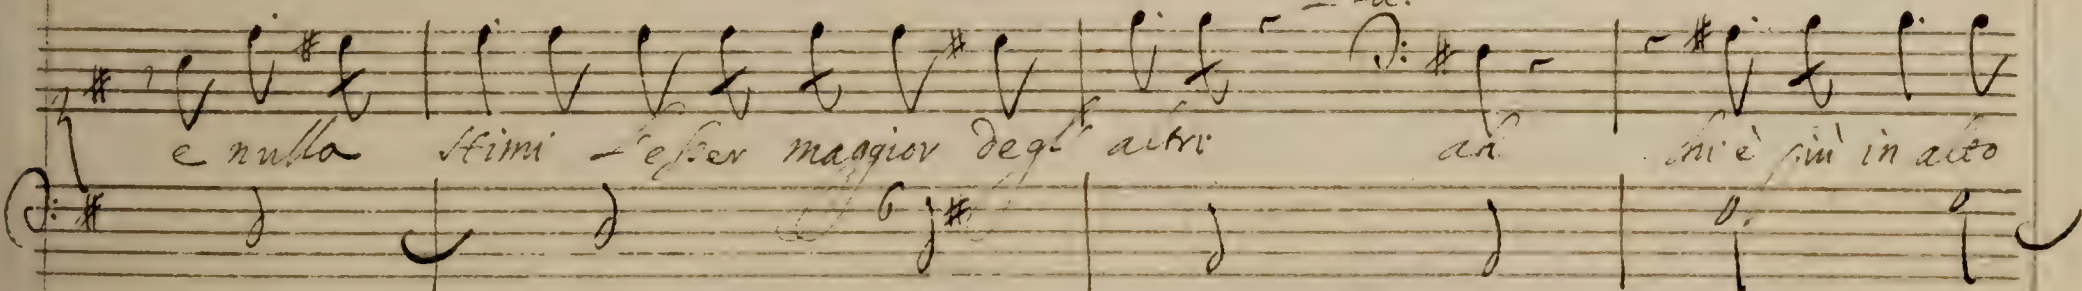 e nulla stimi l'esser maggior degl' altri ah chi è più in alto